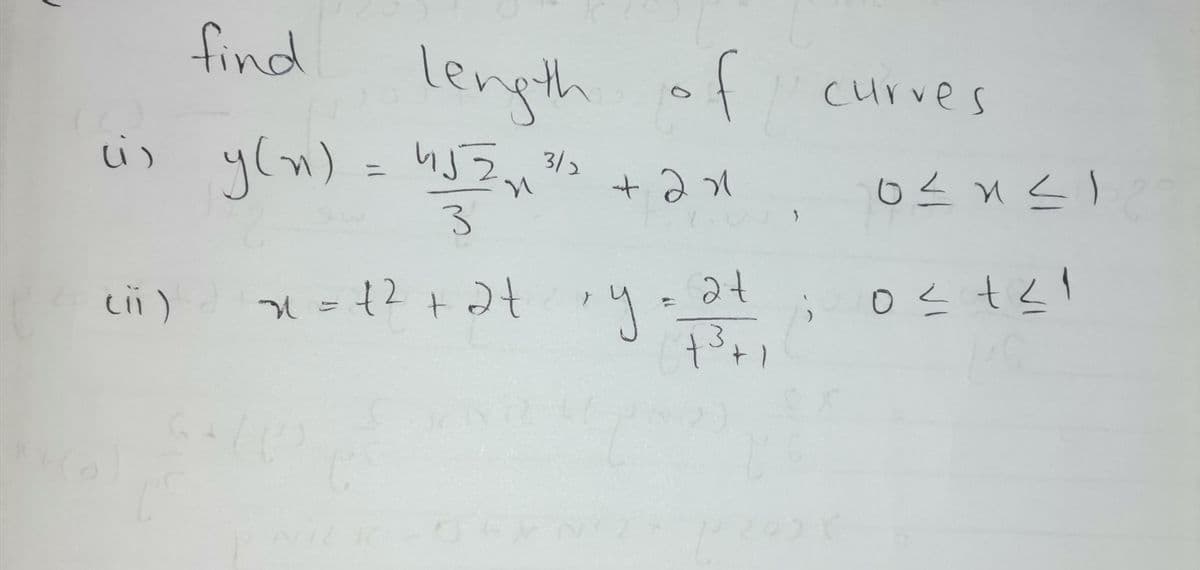 find length of curves
(i) y(x) = 4√2/3 x^3/2 + 2x , 0 ≤ x ≤ 1
(ii) x = t² + 2t , y = 2t/(t³+1) ; 0 ≤ t ≤ 1